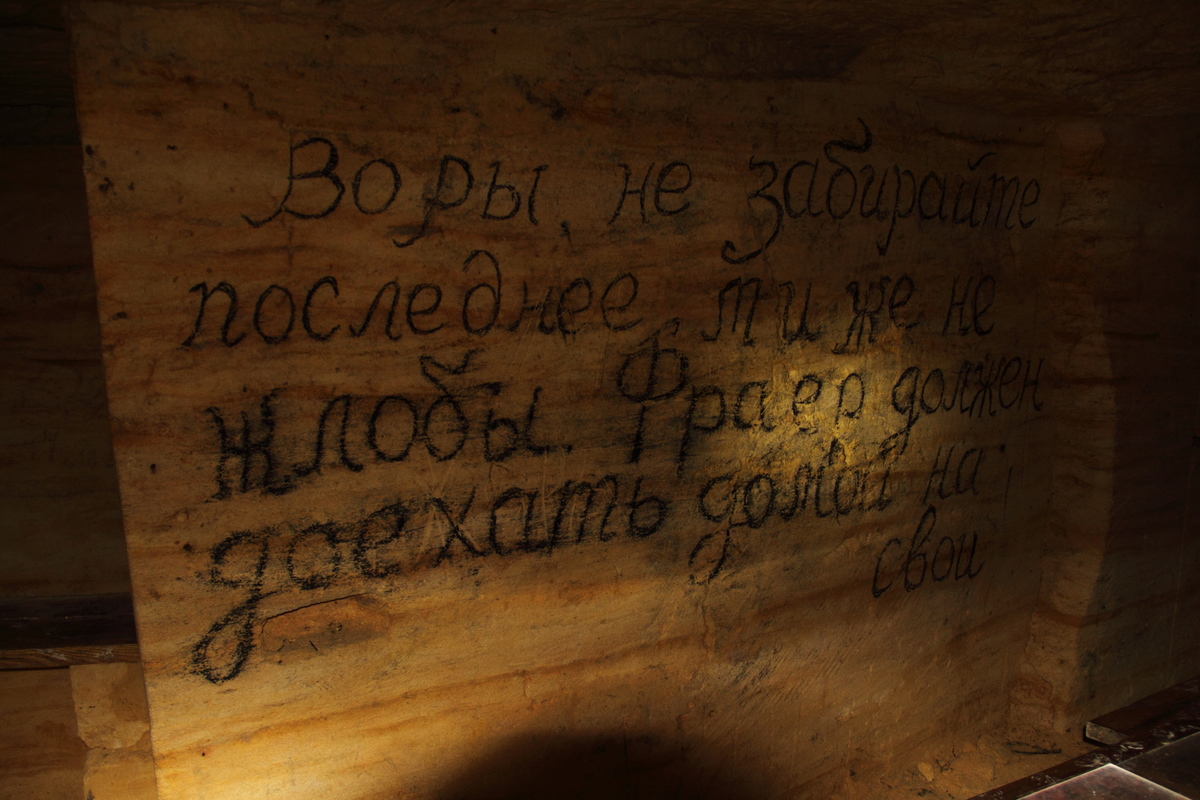 Воры, не забирайте
последнее, ти же не
жлобы. Фраер должен
доехать домой на
свои